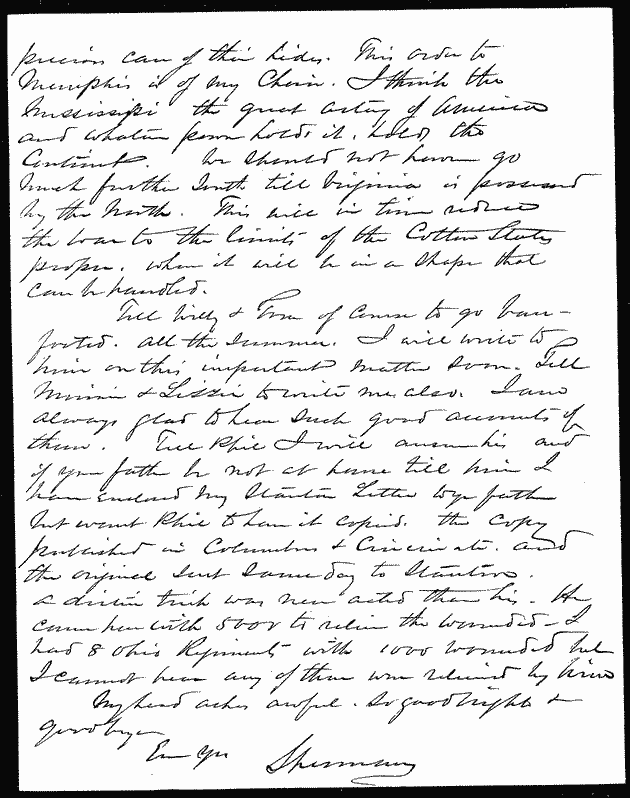 precious care of their hides. This order to
Memphis is of my choice. I think the
Mississippi the great artery of America
and whatever power holds it, holds the
Continent. We should not however go
much further South till Virginia is possessed
by the North. This will in time reduce
the War to the limits of the Cotton States
proper. When it will be in a shape that
can be handled.
Tell Willy & Tom of course to go bare-
footed. all the summer. I will write to
him on this important matter soon. Tell
Minnie & Lizzie to write me also. I am
always glad to hear such good accounts of
them. Tell Phil I will answer his and
if your father be not at home tell him I
have enclosed my Stanton Letter to yr father
but want Phil to have it copied. the copy
published in Columbus & Cincinnati. and
the original sent same day to Stanton.
a dirtier trick was never acted than his. He
came here with 5000 to relieve the wounded - I
had 8 Ohio Regiments with 1000 wounded but
I cannot hear any of them were relieved by him
My head aches awful. So good night &
good bye
Em Yrs
Sherman